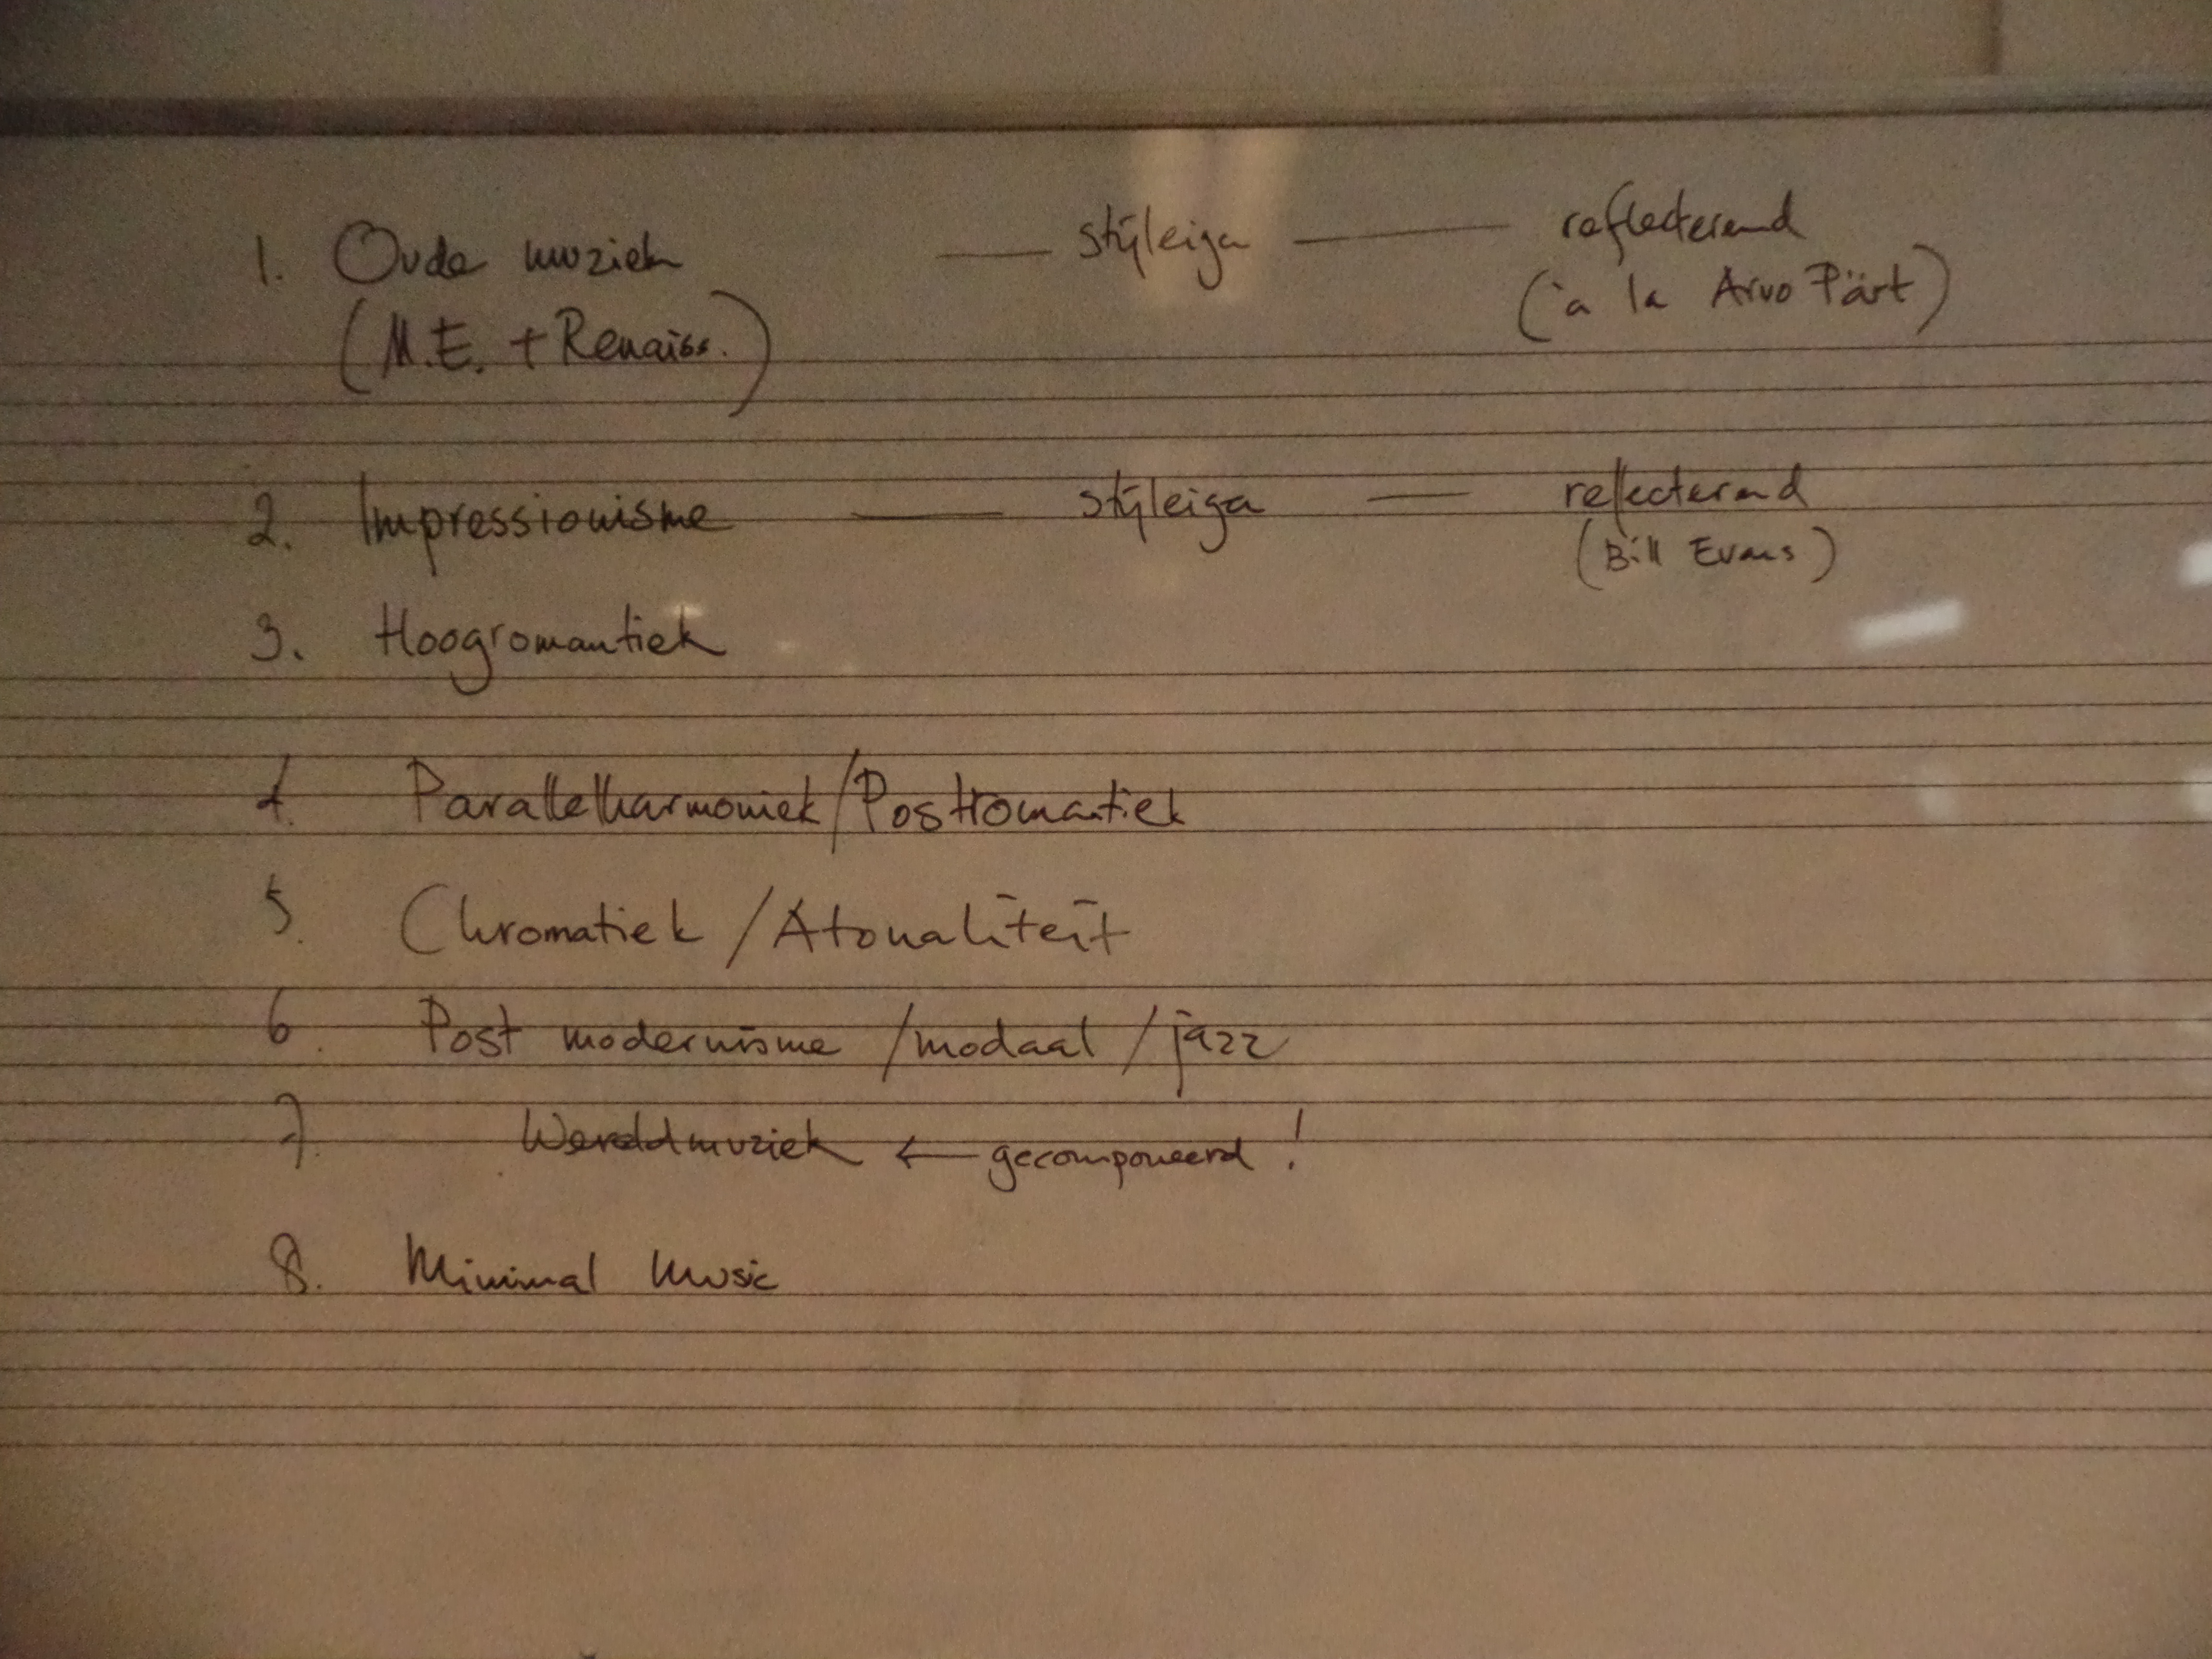 1. Oude muziek — stijleigen — reflecterend
(M.E. + Renaiss.) (à la Arvo Pärt)
2. Impressionisme — stijleigen — reflecterend
(Bill Evans)
3. Hoogromantiek
4. Parallelharmoniek/Postromantiek
5. Chromatiek/Atonaliteit
6. Post modernisme /modaal /jazz
7. Wereldmuziek ← gecomponeerd!
8. Minimal Music